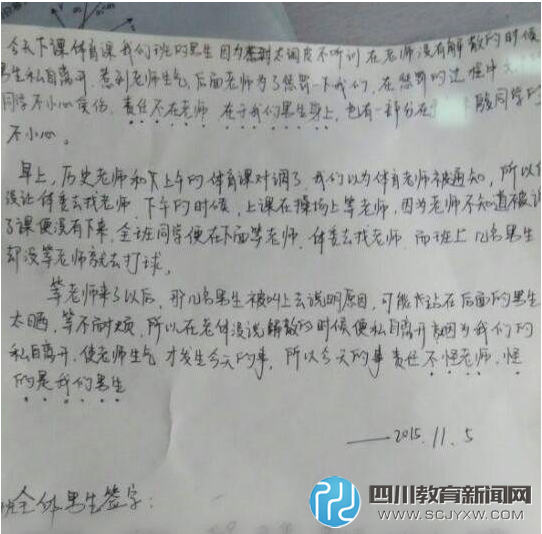 今天下课体育课我们班的男生因为感到太调皮不听训在老师没有解散的时候
男生私自离开.惹到老师生气.后面老师为了惩罚一下我们,在惩罚的过程中
同学不小心负伤,责任不在老师 在于我们男生身上,也有一部分在 同学的
不小心。
早上,历史老师和下上午的体育课对调了.我们以为体育老师被通知,所以
没让体委去找老师.下午的时候,上课在操场上等老师,因为老师不知道被调
了课便没有下来.全班同学便在下面等老师.体委去找老师.而班上几名男生
却没等老师就去打球。
等老师来了以后,那几名男生被叫上去说明原因,可能站在后面的男生
太晒,等不耐烦,所以在老师没说解散的时候便私自离开 因为我们的
私自离开,使老师生气 才发生今天的事,所以今天的事 责任不怪老师,怪
的是我们男生
——2015.11.5
班全体男生签字:
四川教育新闻网
WWW.SCJYXW.COM